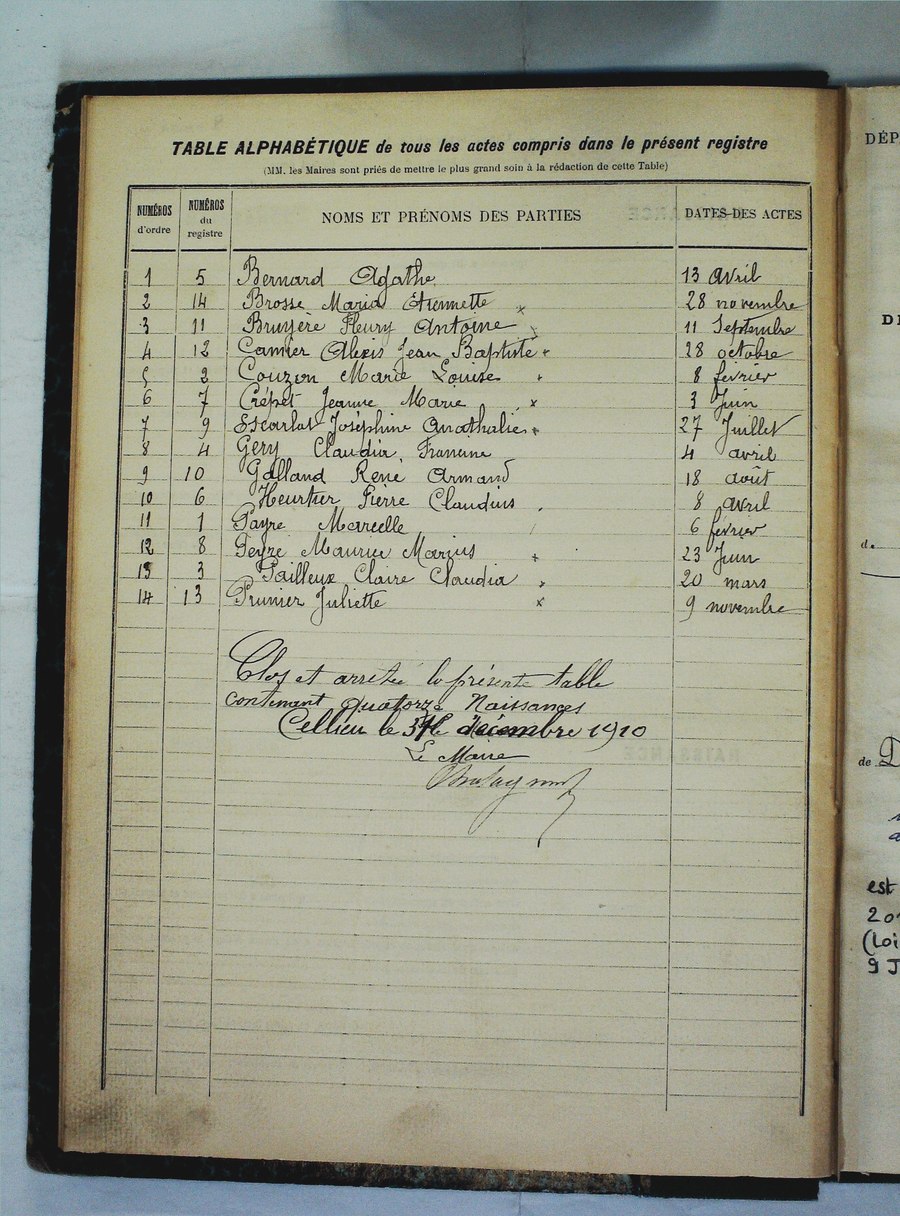 TABLE ALPHABÉTIQUE de tous les actes compris dans le présent registre
(MM. les Maires sont priés de mettre le plus grand soin à la rédaction de cette Table)
NUMÉROS d'ordre NUMÉROS du registre NOMS ET PRÉNOMS DES PARTIES DATES DES ACTES
1 5 Bernard Agathe 13 avril
2 14 Brosse Maria Etiennette 28 novembre
3 11 Bruyère Fleury Antoine 11 Septembre
4 12 Camier Alexis Jean Baptiste 28 octobre
5 2 Couzon Marie Louise 8 février
6 7 Crépet Jeanne Marie 3 Juin
7 9 Escarlat Joséphine Anathalie 27 Juillet
8 4 Gery Claudia Francine 4 avril
9 10 Galland René Armand 18 août
10 6 Heurtier Pierre Claudius 8 avril
11 1 Payre Marcelle 6 février
12 8 Peyre Maurice Marius 23 Juin
13 3 Pailleux Claire Claudia 20 mars
14 13 Prunier Juliette 9 novembre
Clos et arrêtée la présente table
contenant quatorze Naissances
Cellieu le décembre 1910
Le Maire
DÉP
D
de
de D
est
(Loi
9 J